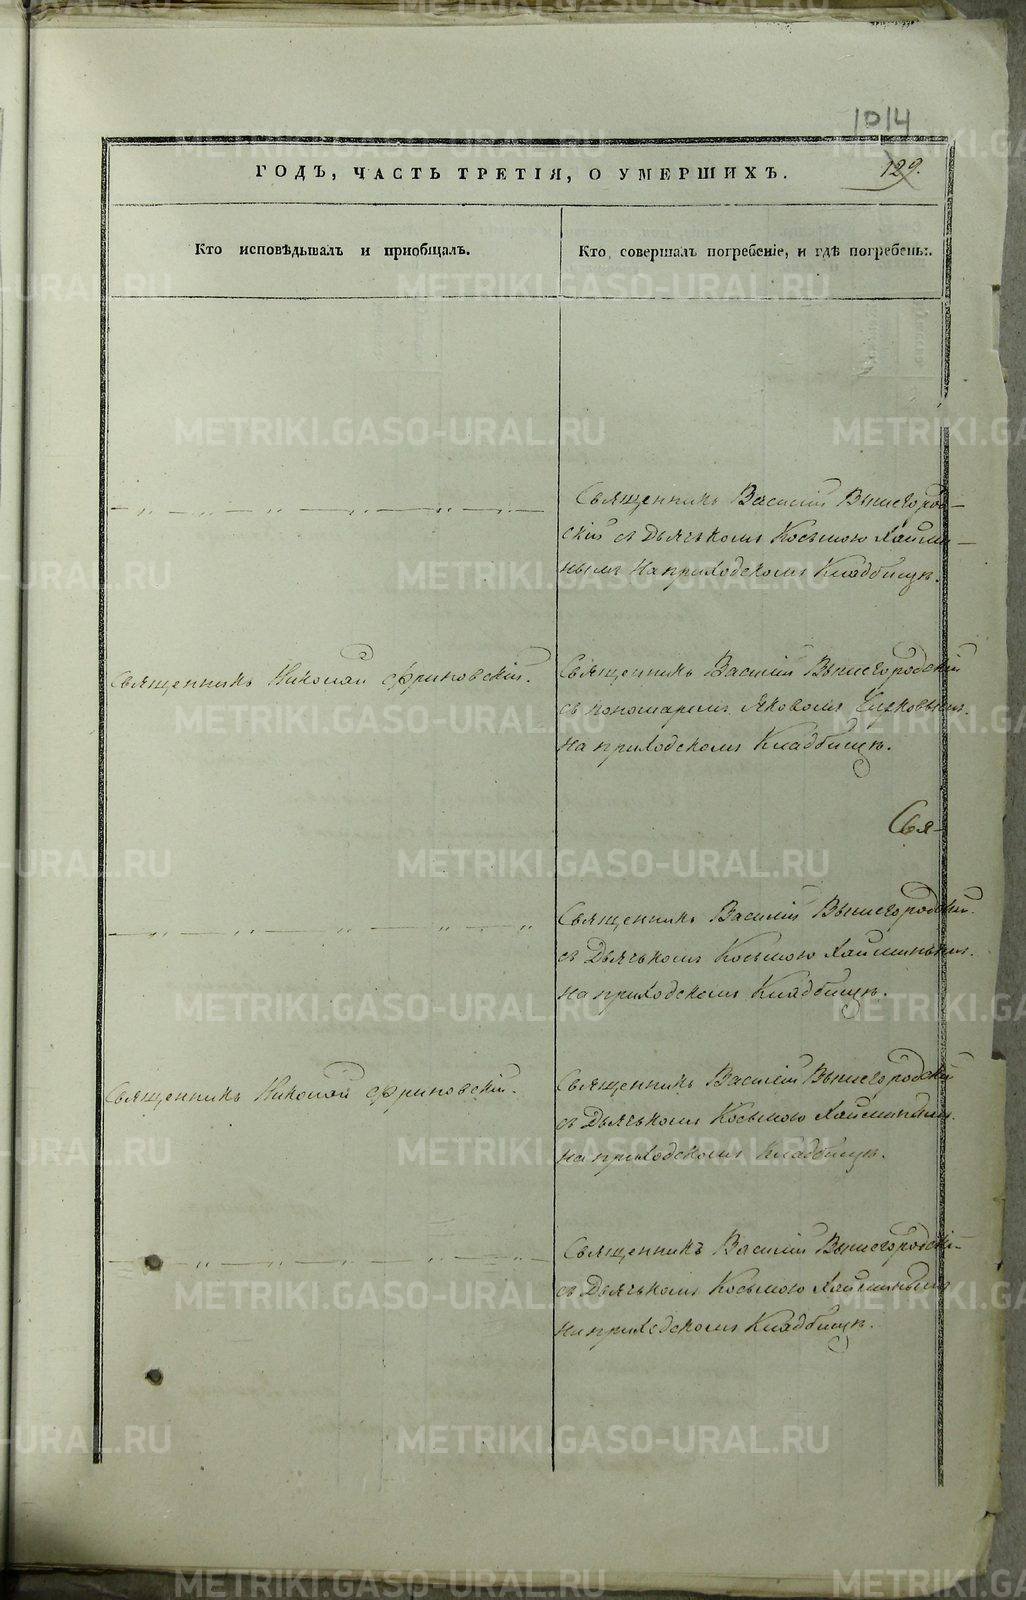 1014
ГОДЪ, ЧАСТЬ ТРЕТІЯ, О УМЕРШИХЪ.
129.
Кто исповѣдывалъ и пріобщалъ.
Кто совершалъ погребеніе, и гдѣ погребены.
Священникъ Василій Вышегород-
скій съ Дьячкомъ Косьмою
нымъ На приходскомъ Кладбищѣ.
Священникъ Николай Фриновскій.
Священникъ Василій Вышегородскій
съ пономаремъ Яковомъ
на приходскомъ Кладбищѣ.
Свя-
Священникъ Василій Вышегородскій
съ Дьячкомъ Косьмою
на приходскомъ Кладбищѣ.
Священникъ Николай Фриновскій.
Священникъ Василій Вышегородскій
съ Дьячкомъ Косьмою
на приходскомъ Кладбищѣ.
Священникъ Василій Вышегородскій
съ Дьячкомъ Косьмою
на приходскомъ Кладбищѣ.
METRIKI.GASO-URAL.RU